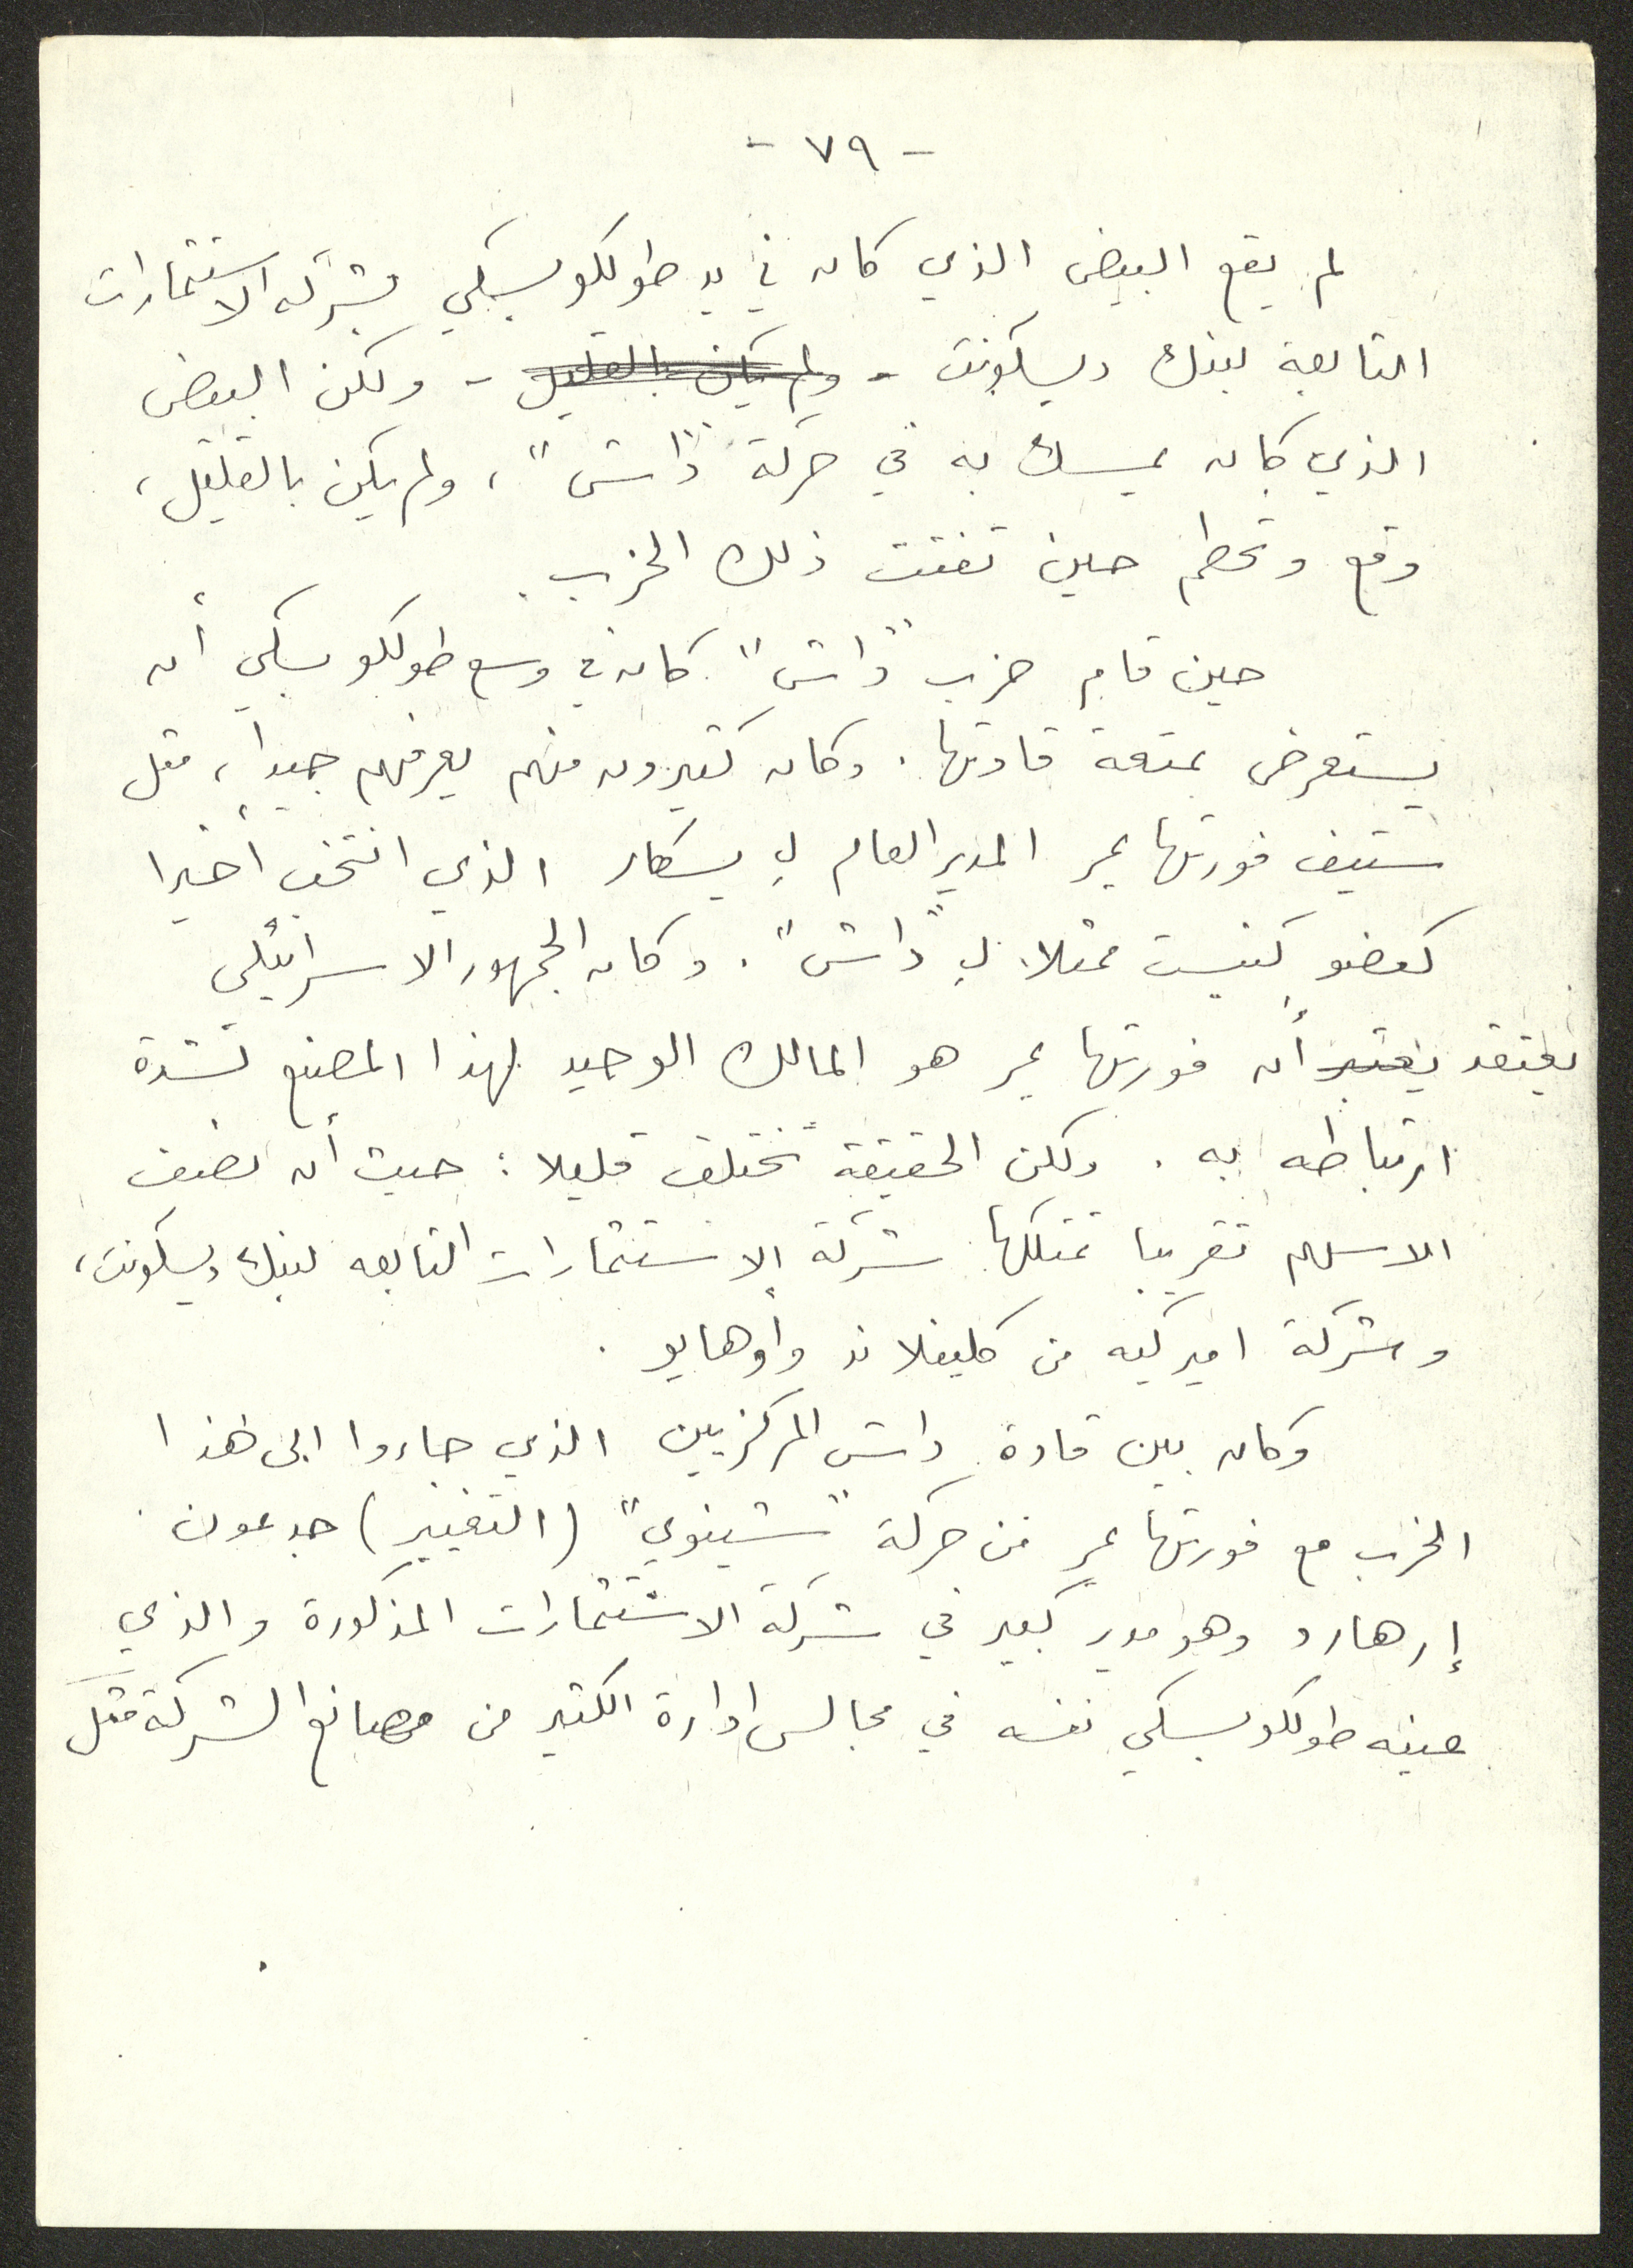 - ٧٩ -
لم يقع البيض الذي كان في يد طولكوبسكي بشركه الاستثمارات
التابعة لبنك ديسكونت - ولم يكن بالقليل - ولكن البيض
الذي كان يمسك به في حركة "داش"، ولم يكن بالقليل،
وقع وتحطم حين تفتت ذلك الحزب.
حين قام حزب "داش" كان في وسع طولكوبسكي أن
يستعرض بمتعة قادتها. وكان كثيرون منهم يعرفهم جيدا، مثل
ستيف فورتهايمر المدير العام لـ يسكار الذي انتخب أخيرا
كعضو كنيست ممثلا لـ "داش". وكان الجمهور الاسرائيلي
يعتقد يعتبر أن فورتهايمر هو المالك الوحيد لهذا المصنع لشدة
ارتباطه به. ولكن الحقيقة تختلف قليلا: حيث أن نصف
الاسهم تقريبا تمتلكها شركة الاستثمارات التابعه لبنك ديسكونت،
وشركة اميركيه من كليفلاند وأوهايو.
وكان بين قادة داش المركزيين الذي جاءوا الى هذا
الحزب مع فورتهايمر من حركة "شينوي" (التغيير) جدعون
إرهارد وهو مدير كبير في شركة الاستثمارات المذكورة والذي
عينه طولكوبسكي نفسه في مجالس ادارة الكثير من مصانع الشركة مثل